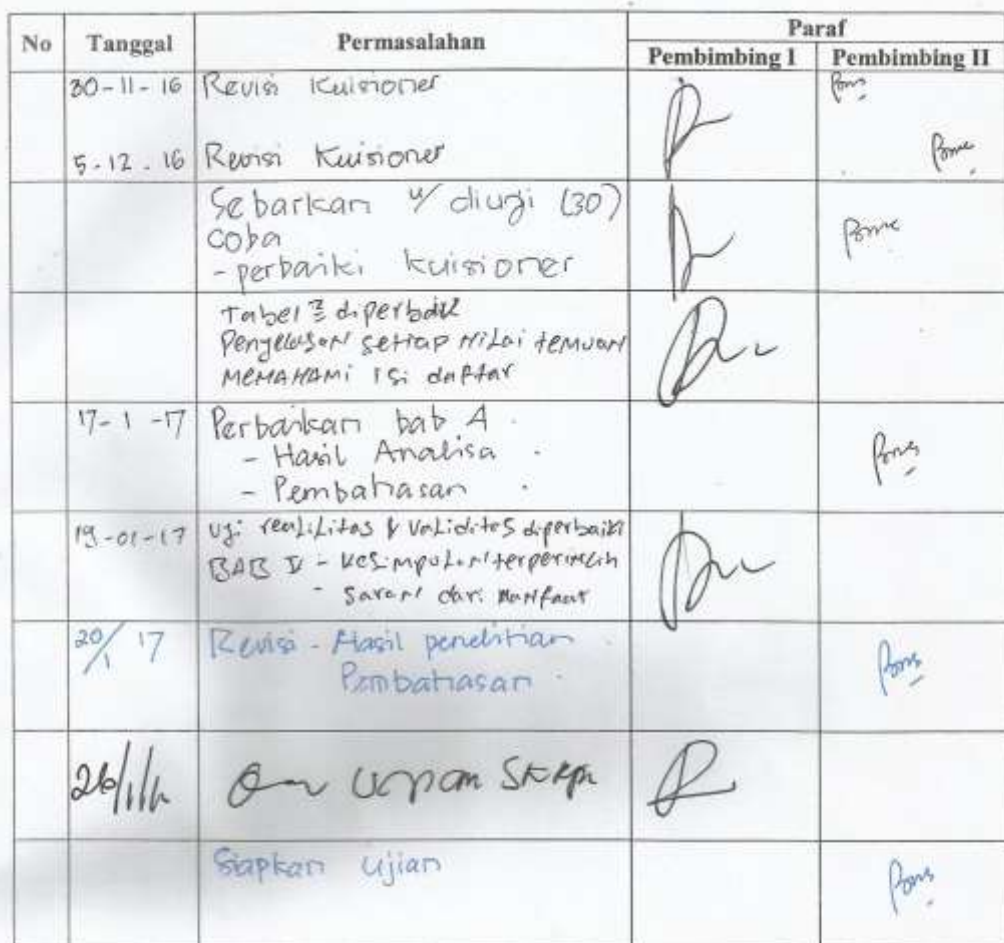 No Tanggal Permasalahan Paraf
Pembimbing I Pembimbing II
30-11-16 Revisi Kuisioner
5.12.16 Revisi Kuisioner
Sebarkan u/ diuji (30)
coba
- perbaiki kuisioner
Tabel diperbaiki
Penjelasan setiap Nilai temuan
MEMAHAMI isi daftar
17-1-17 Perbaikan bab 4.
- Hasil Analisa .
- Pembahasan .
19-01-17 Uji & validitas diperbaiki
BAB V - Kesimpulan terperinci
- Saran dari Manfaat
20/1 17 Revisi - Hasil penelitian .
Pembahasan .
Ujian Skripsi
Siapkan Ujian